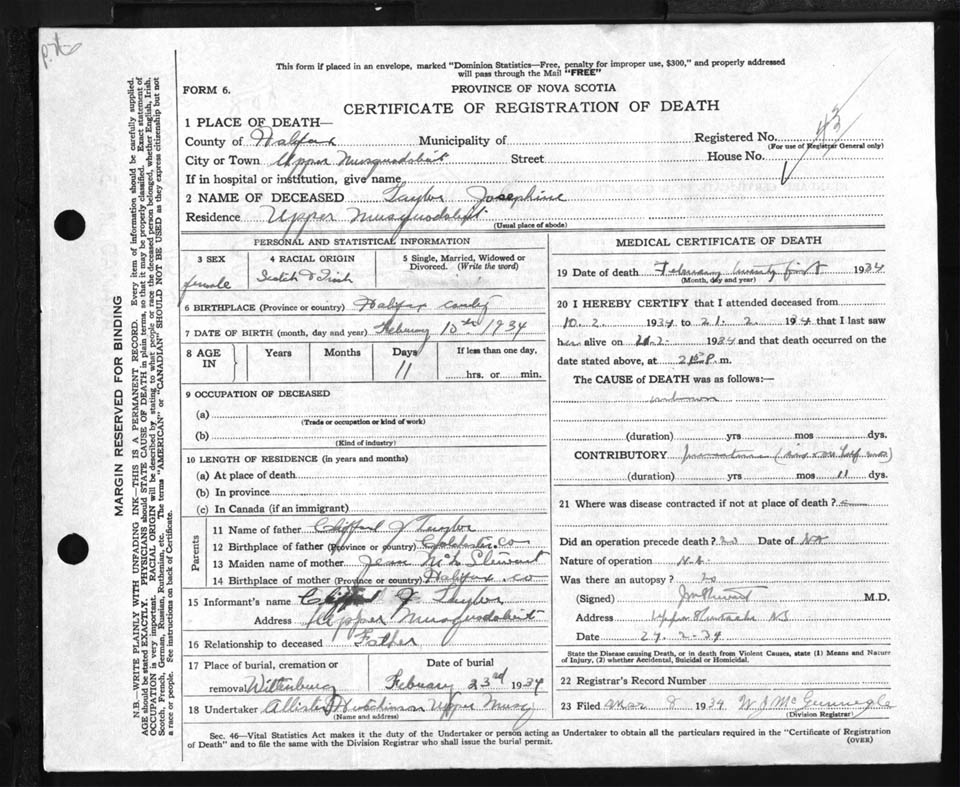 This form if placed in an envelope, marked "Dominion Statistics—Free, penalty for improper use, $300," and properly addressed
will pass through the Mail "FREE"
FORM 6.
PROVINCE OF NOVA SCOTIA
CERTIFICATE OF REGISTRATION OF DEATH
1 PLACE OF DEATH—
County of Halifax Municipality of Registered No. 43
(For use of Registrar General only)
City or Town Upper Musquodoboit Street House No.
If in hospital or institution, give name
2 NAME OF DECEASED Taylor Josephine
Residence Upper Musquodoboit
(Usual place of abode)
PERSONAL AND STATISTICAL INFORMATION
3 SEX 4 RACIAL ORIGIN 5 Single, Married, Widowed or
Divorced. (Write the word)
female Scotch & Irish
6 BIRTHPLACE (Province or country) Halifax county
7 DATE OF BIRTH (month, day and year) February 10th 1934
8 AGE IN Years Months Days If less than one day,
11 hrs. or min.
9 OCCUPATION OF DECEASED
(a)
(Trade or occupation or kind of work)
(b)
(Kind of industry)
10 LENGTH OF RESIDENCE (in years and months)
(a) At place of death
(b) In province
(c) In Canada (if an immigrant)
Parents
11 Name of father Clifford J Taylor
12 Birthplace of father (Province or country) Colchester Co
13 Maiden name of mother Jean Mc L Stewart
14 Birthplace of mother (Province or country) Halifax co
15 Informant's name Clifford J Taylor
Address Upper Musquodoboit
16 Relationship to deceased Father
17 Place of burial, cremation or Date of burial
removal Wittenburg February 23rd 1934
18 Undertaker Allister Hutchinson Upper Musq
(Name and address)
MEDICAL CERTIFICATE OF DEATH
19 Date of death February twenty first 1934
(Month, day and year)
20 I HEREBY CERTIFY that I attended deceased from
10. 2. 1934 to 21. 2. 1934 that I last saw
her alive on 21.2. 1934 and that death occurred on the
date stated above, at 2 P. m.
The CAUSE of DEATH was as follows:—
unknown
(duration) yrs mos dys.
CONTRIBUTORY
(duration) yrs mos 11 dys.
21 Where was disease contracted if not at place of death?
Did an operation precede death? no Date of NA
Nature of operation N.A.
Was there an autopsy? no
(Signed) M.D.
Address Upper N S
Date 27. 2. 34
State the Disease causing Death, or in death from Violent Causes, state (1) Means and Nature
of Injury, (2) whether Accidental, Suicidal or Homicidal.
22 Registrar's Record Number
23 Filed Mar 8 1934 W J McGunnigle
(Division Registrar)
Sec. 46—Vital Statistics Act makes it the duty of the Undertaker or person acting as Undertaker to obtain all the particulars required in the "Certificate of Registration
of Death" and to file the same with the Division Registrar who shall issue the burial permit.
(OVER)
MARGIN RESERVED FOR BINDING
N.B.—WRITE PLAINLY WITH UNFADING INK—THIS IS A PERMANENT RECORD. Every item of information should be carefully supplied.
AGE should be stated EXACTLY. PHYSICIANS should STATE CAUSE OF DEATH in plain terms, so that it may be properly classified. Exact statement of
OCCUPATION is very important. RACIAL ORIGIN will be described by stating to what people or race the deceased person belonged, whether English, Irish,
Scotch, French, German, Russian, Ruthenian, etc. The terms "AMERICAN" or "CANADIAN" SHOULD NOT BE USED as they express citizenship but not
a race or people. See instructions on back of Certificate.